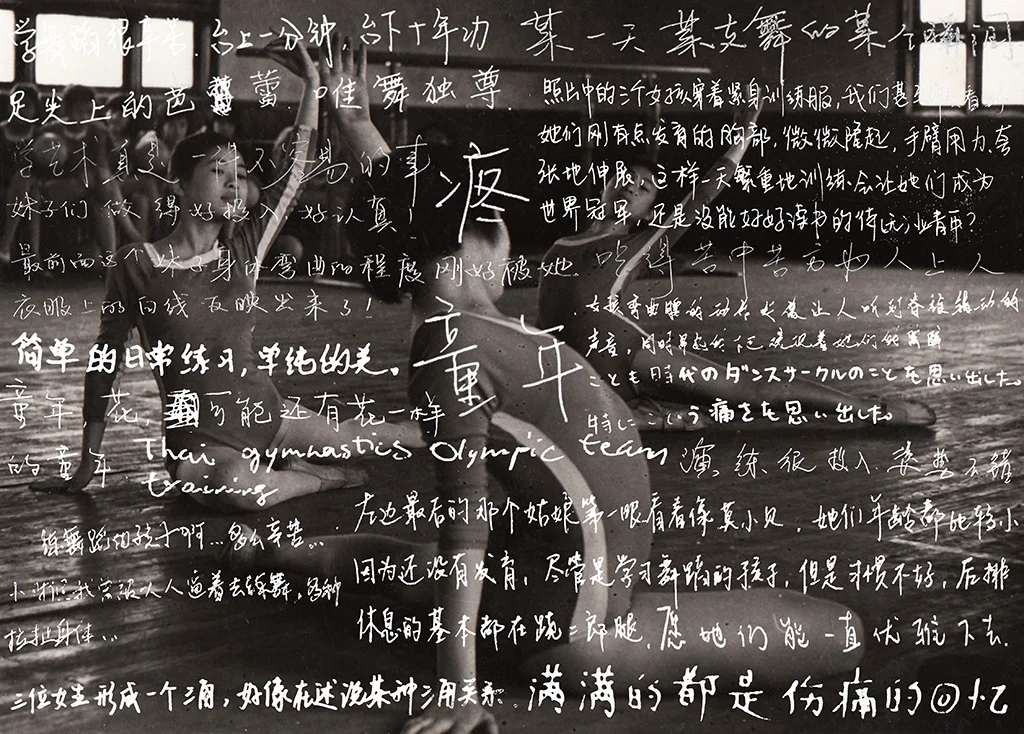 学舞蹈很辛苦.台上一分钟,台下十年功
某一天 某支舞的某个瞬间
足尖上的芭蕾.唯舞独尊.
照片中的三个女孩穿着紧身训练服,我们甚至
她们刚有点发育的胸部,微微隆起,手臂用力、夸
张地伸展,这样一天繁重地训练会让她们成为
世界冠军,还是没能好好读书的体
学艺术真是一件不容易的事
妹子们做得好投入,好认真!
最前面这个妹子身体弯曲的程度刚好被她
衣服上的白线反映出来了!
疼
吃得苦中苦方为人上人
声音,同时
童年
简单的日常练习,单纯的美。
こども時代のダンスサークルのことを思い出した。
特にこういう痛さを思い出した。
童年,花,可能还有花一样
的童年
Thai gymnastics Olympic team
training
演练很投入.姿势不错
左边最后的那个姑娘第一眼看着像莫小贝,她们年龄都比较小
因为还没有发育,尽管是学习舞蹈的孩子,但是习惯不好,后排
休息的基本都在跷二郎腿.愿她们能一直优雅下去.
练舞蹈的孩子啊...多么辛苦...
小时候我常被大人逼着去练舞,各种
拉扯身体...
三位女生形成一个三角,好像在述说某种三角关系.
满满的都是伤痛的回忆